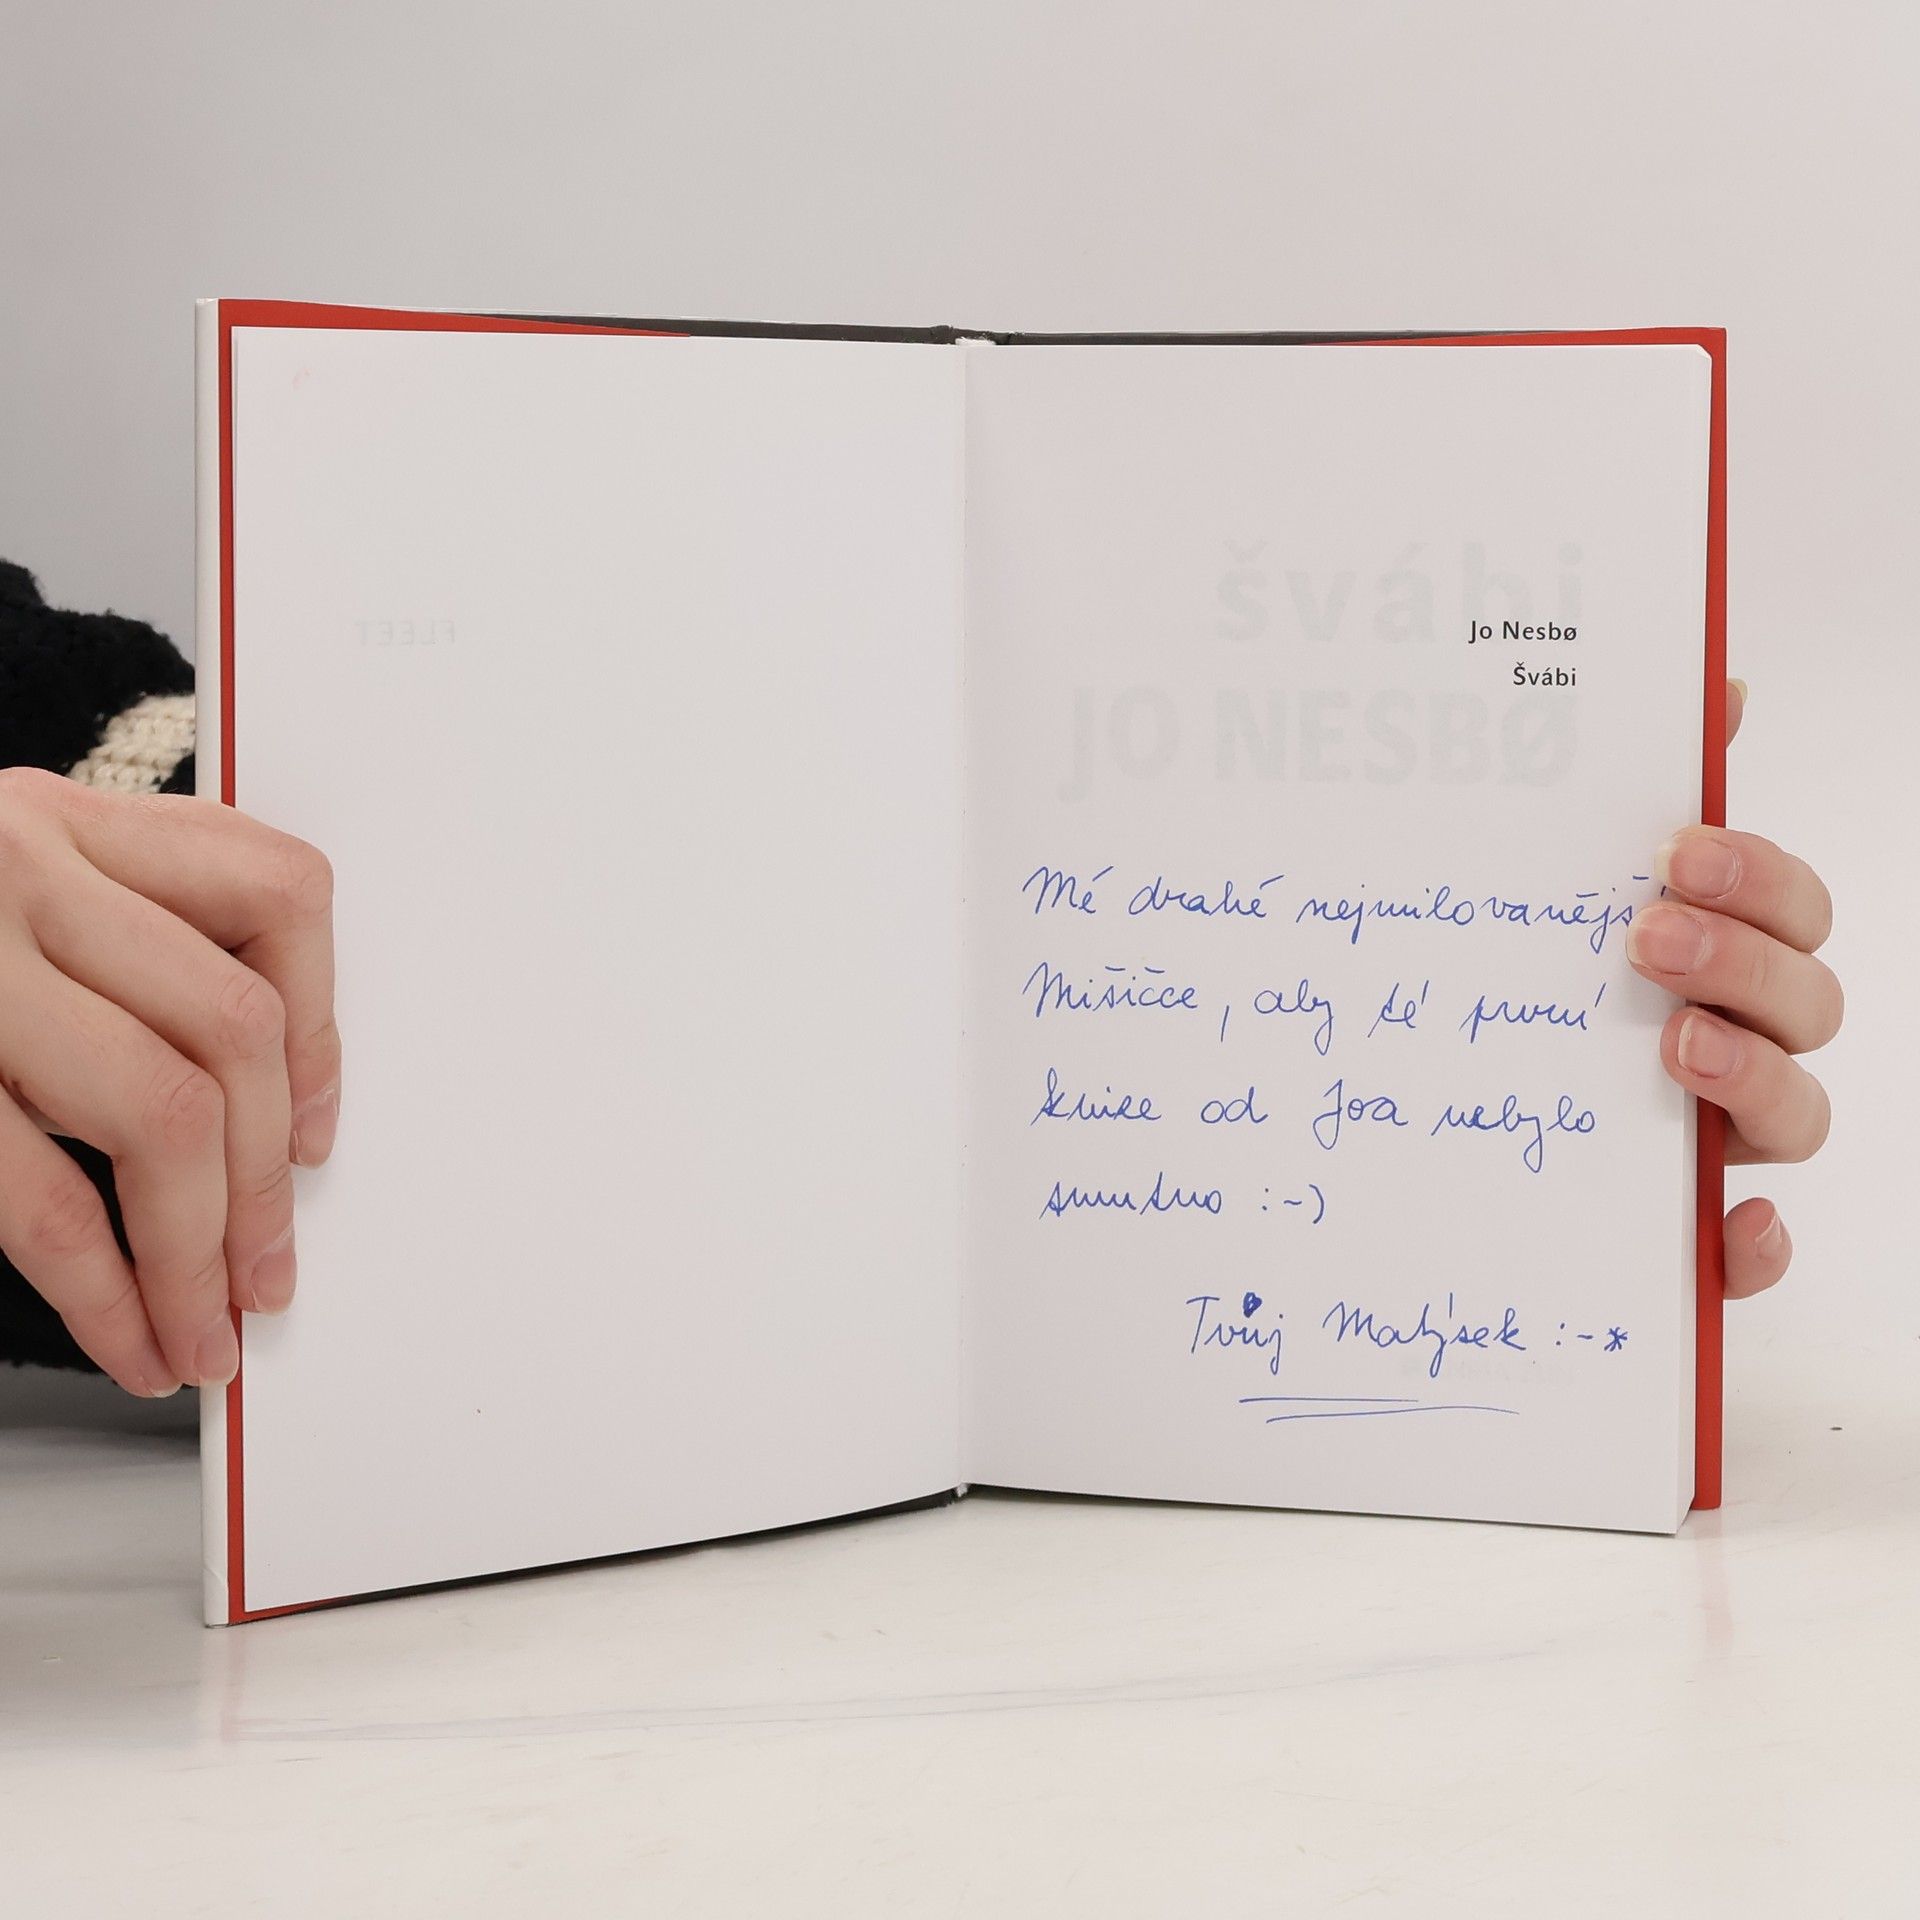 FLEET
švábi
Jo Nesbø
Švábi
JO NESBØ
Mé drahé nejmilovanějš
Mišičce, aby té první
knize od Joa nebylo
smutno :-)
Tvůj Matýsek :-*